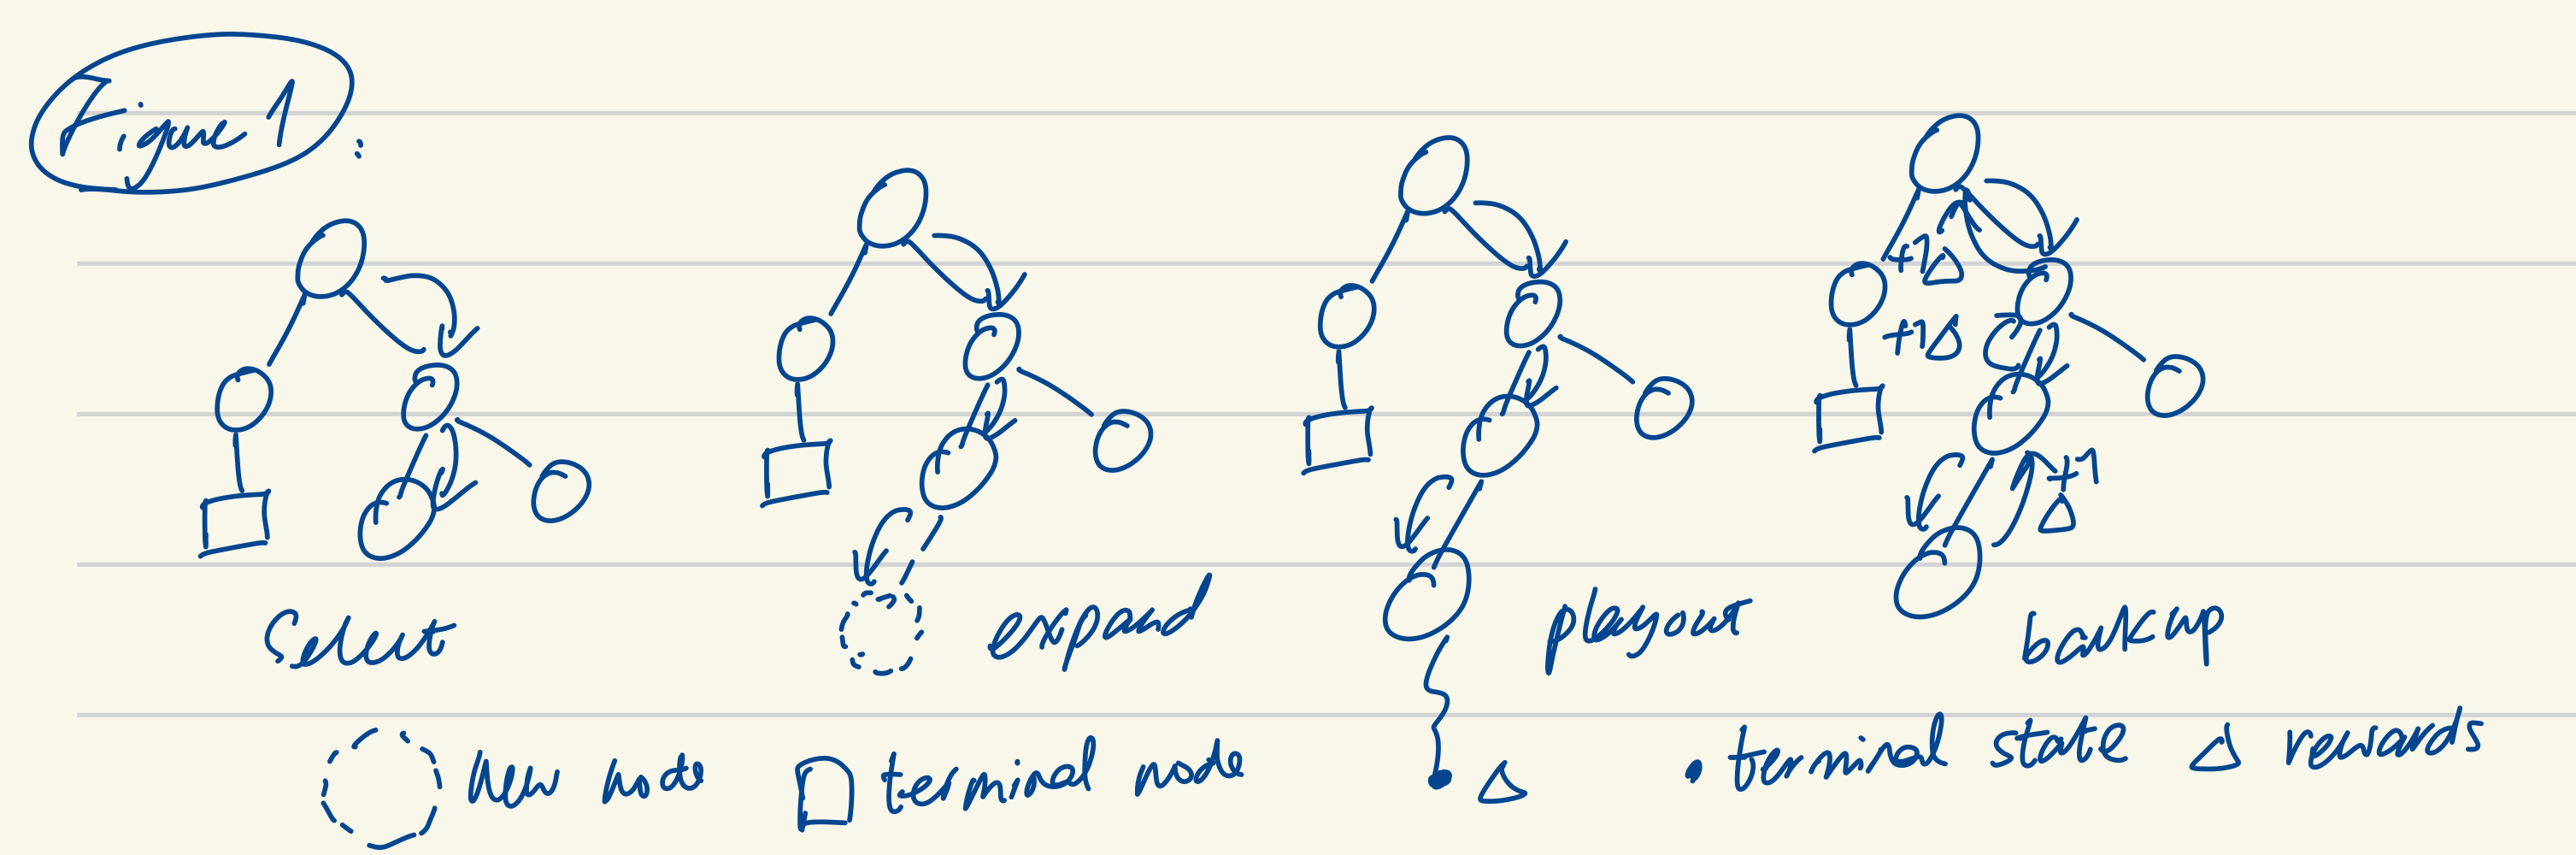 Figure 1 :
+1 Δ
+1 Δ
+1
Δ
Select
expand
playout
backup
New node
terminal node
Δ
• terminal state Δ rewards